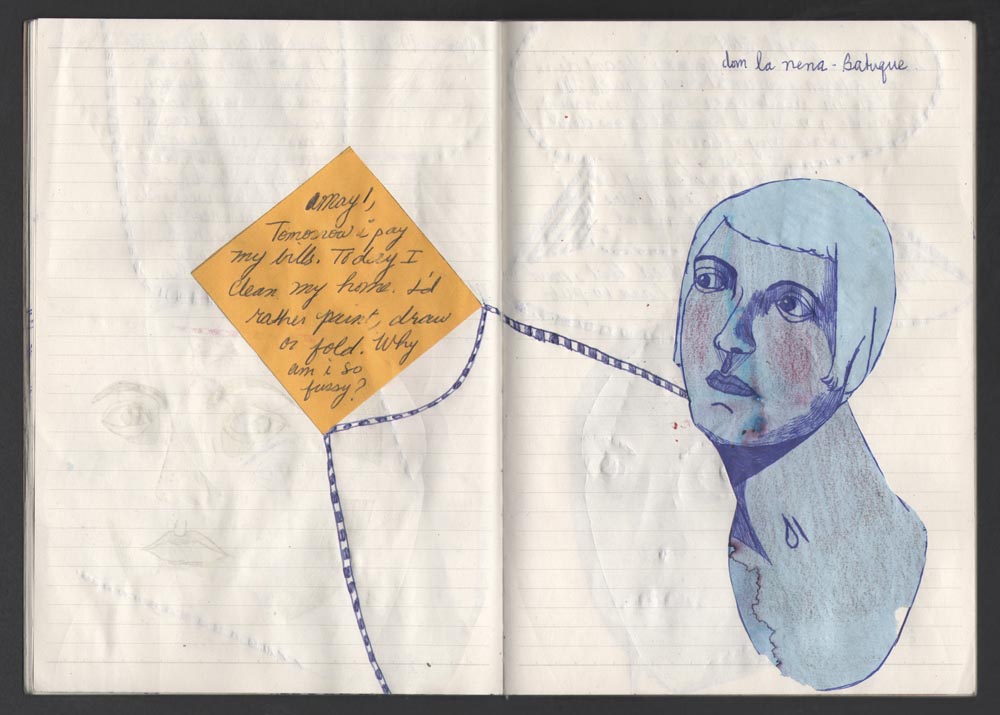 amay!,
Tomorrow i pay
my bills. Today I
clean my home. I'd
rather paint, draw
or fold. Why
am i so
fussy?
dom la nena - Batuque